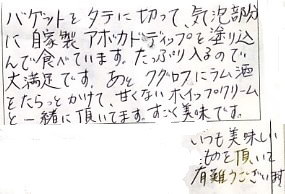 バゲットをタテに切って、気泡部分
に自家製アボカドディップを塗り込
んで食べています。たっぷり入るので
大満足です。あと、クグロフにラム酒
をたらっとかけて、甘くないホイップクリーム
と一緒に頂いてます。すごく美味です。
いつも美味しい
ものを頂いて
有難うございます